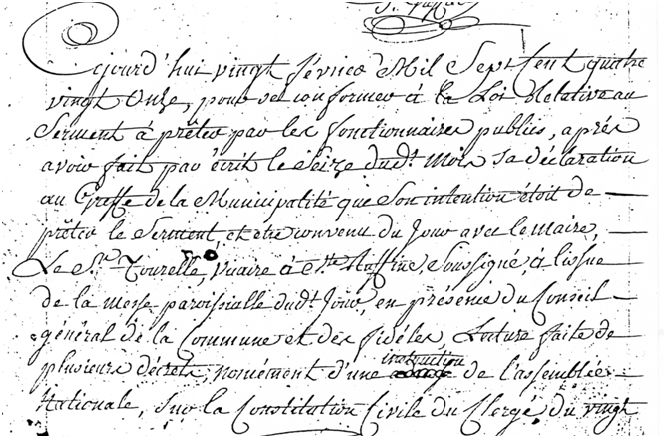 Cejourd'hui vingt février Mil Sept Cent quatre
vingt Onze, pour se conformer à la Loi Relative au
Serment à prêter par les fonctionnaires publics, après
avoir fait par écrit le Seize dud.t Mois sa déclaration
au Greffe de la Municipalité que son intention étoit de
prêter le Serment, et etre convenu du Jour avec le maire,
Le S.r Tourelle, vicaire à S.te Ruffine, Soussigné, à l'issue
de la messe paroissialle dud.t Jour, en présence du Conseil
général de la Commune et des fidéles, Lecture faite de
plusieurs décrets, nomément d'une instruction de l'assemblée
Nationale, sur la Constitution Civile du Clergé du vingt